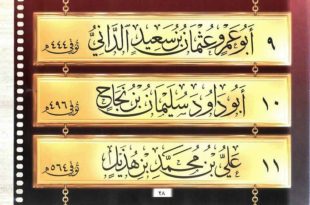 ٩ أبو عمرو عثمان بن سعيد الداني توفي ٤٤٤هـ
١٠ أبو داود سليمان بن نجاح توفي ٤٩٦هـ
١١ علي بن محمد بن هذيل توفي ٥٦٤هـ
٢٨